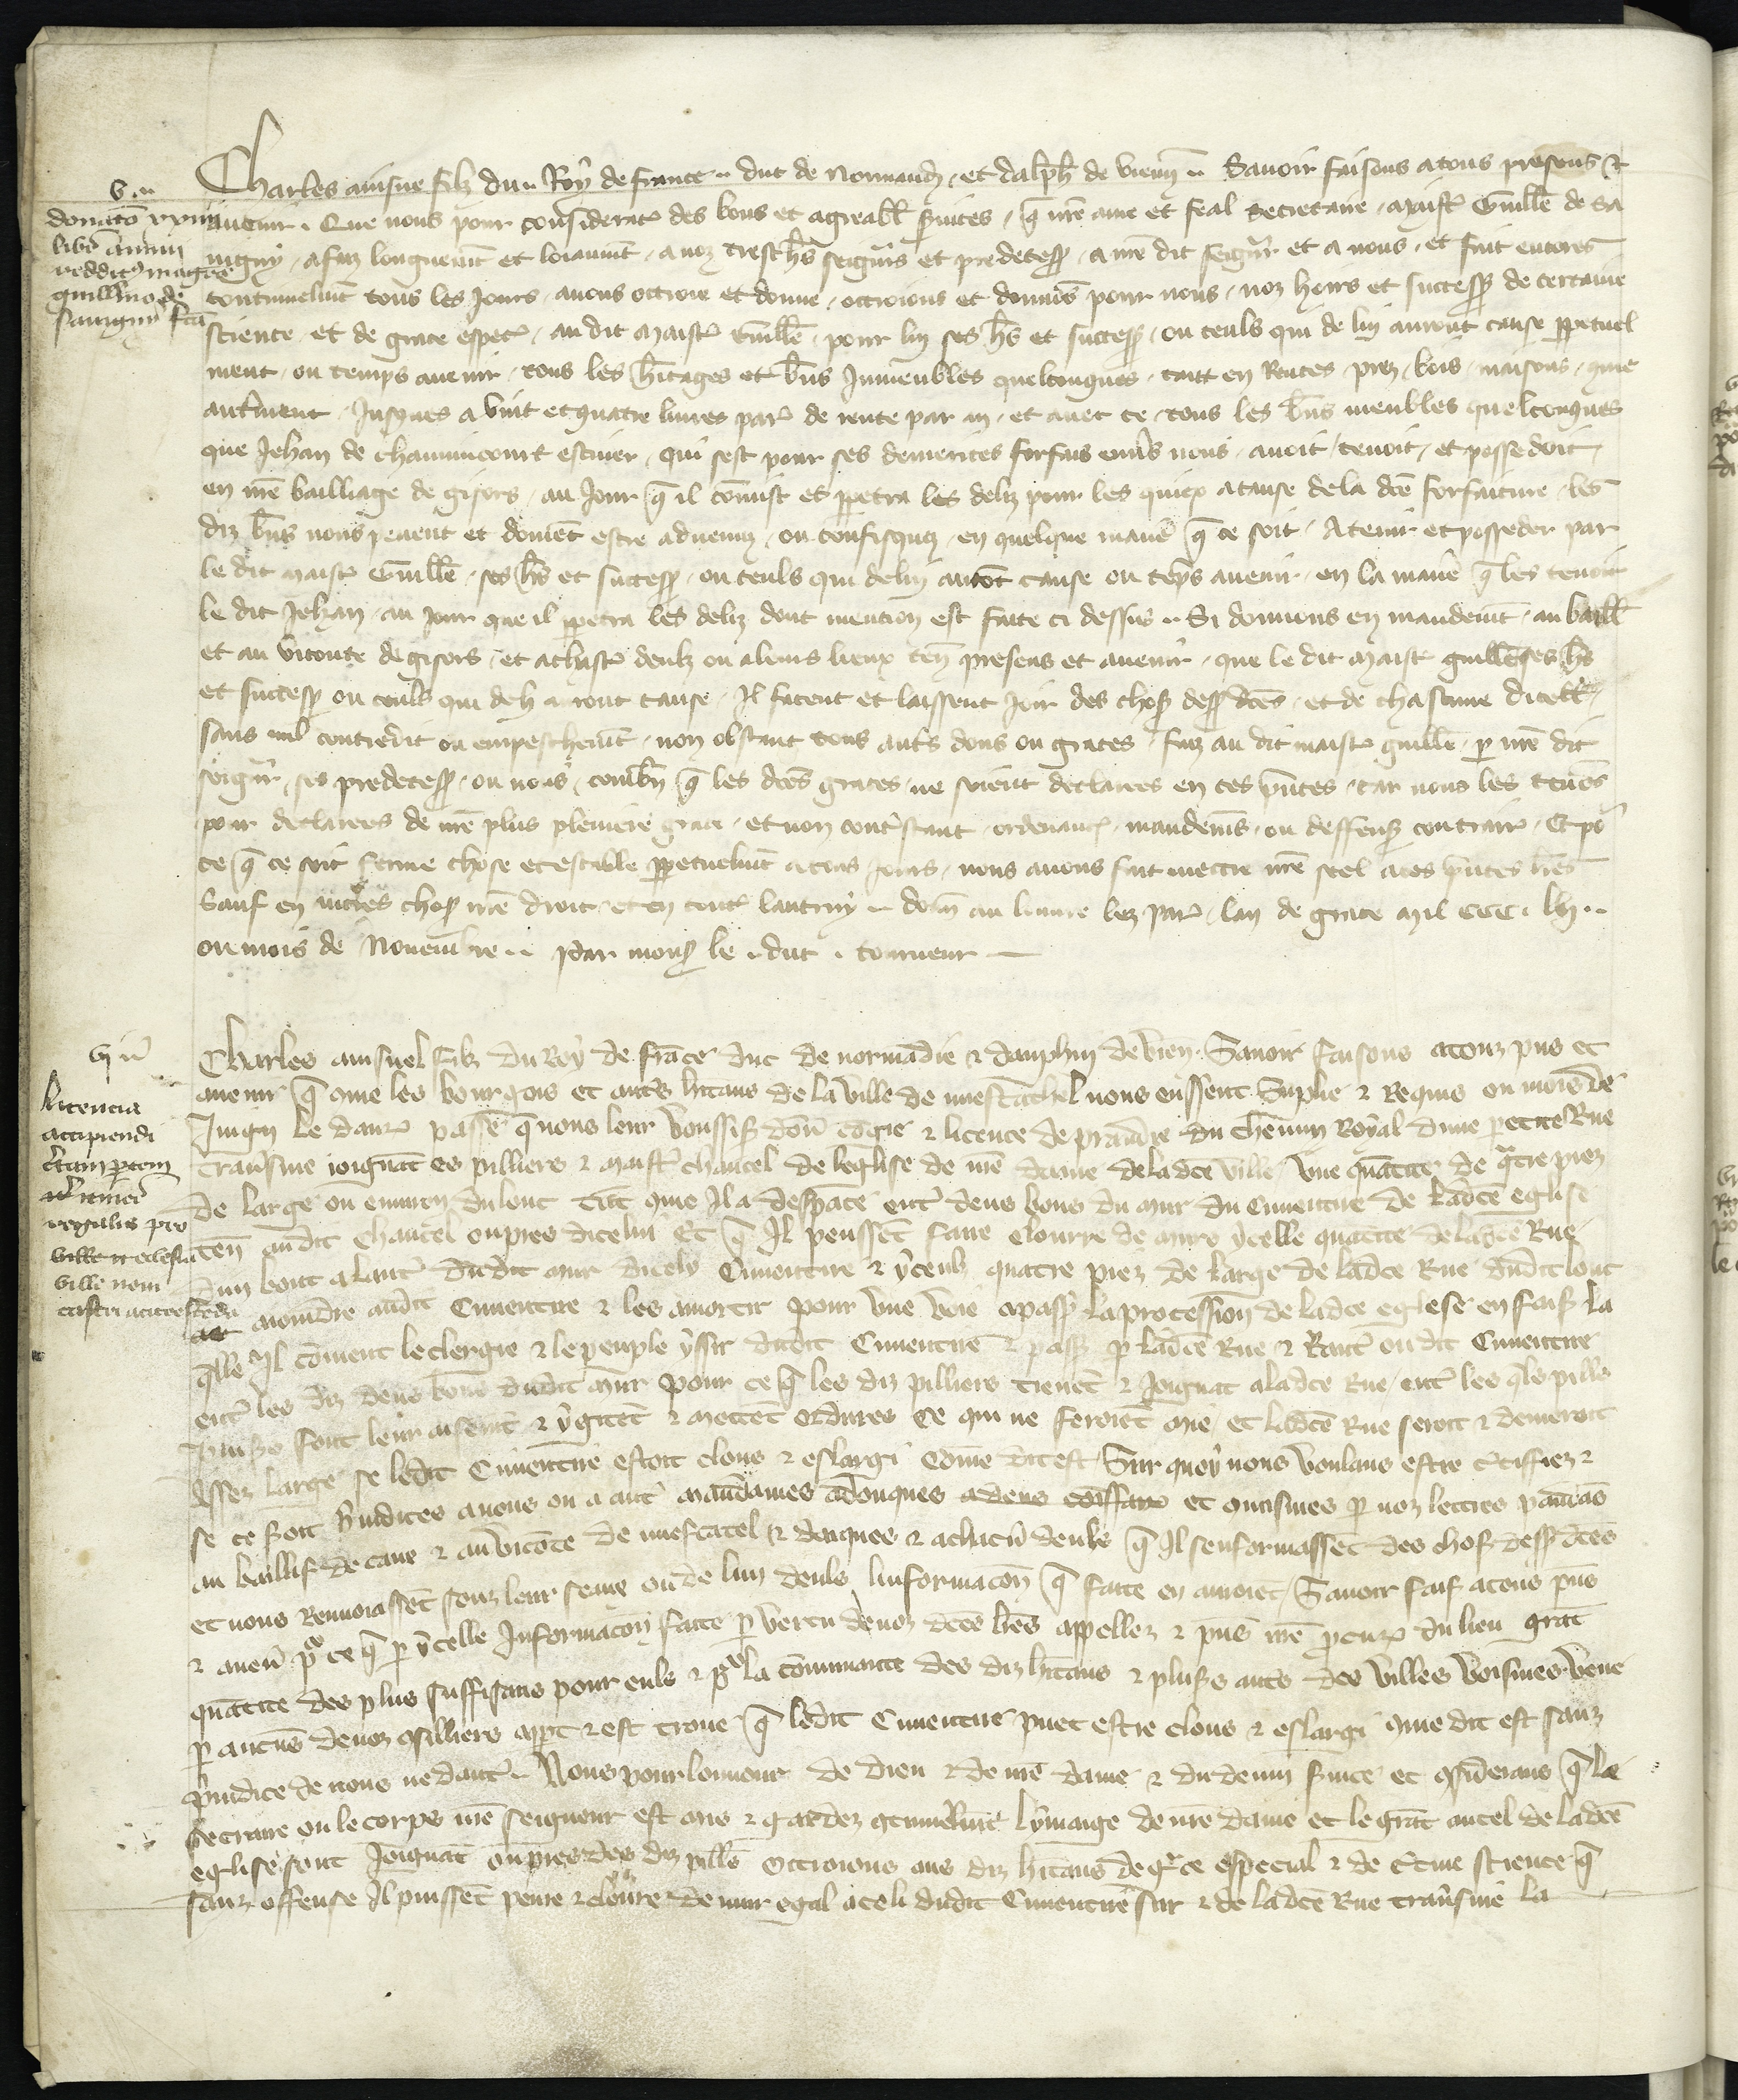 v.
Charles ainsne filz du Roy de france duc de Normand et dalph de vienn Savoir faisons a tous presens et
avenir Que nous pour considerac des bons et agreabl services q nre ame et feal secretaire maistr Guille de Sa
vigny a faiz longuemt et loiaumt a noz treschs seigurs et predecess a nre dit seigur et a nous et fait encores
continuelmt tous les jours avons octroie et donne octroions et donnos pour nous noz hoirs et success de certaine
science et de grace espec au dit maistr Guille pour luy ses hs et success ou ceuls qui de luy auront cause perpetuel
ment ou temps avenir tous les hitages et bns inmeubles quelconques tant en Rentes prez bois maisons que
autrement Jusques a vint et quatre livres par de rente par an et avec ce tous les bns meubles quelconques
que Jehan de chaumincourt escuier qui sest pour ses demerites forfais envs nous avoit tenoit et possedoit
en nre bailliage de gisors au Jour q il comist et ppetra les deliz pour les quiex a cause de la dce forfaiture les
diz bns nous pevent et doivent estre advenuz ou confisquez en quelque manie q ce soit A tenir et posseder par
le dit maistr Guille ses hs et success ou ceuls qui de luy auront cause ou teps avenir en la manie q les tenoit
le dit Jehan au jour que il ppetra les deliz dont mention est faite ci dessus Si donnons en mandemt au baill
et au viconte de gisors et a chascun deulz ou a leurs lieux ten presens et avenir que le dit maistr guille ses hs
et success ou ceuls qui de li auront cause Il facent et laissent joir des chos dess dces et de chascune dicell
sans nul contredit ou empeschemt non obstant tous auts dons ou graces faiz au dit maistr guille p nre dit
seigur ses predecess ou nous combn q les dces graces ne soient declarees en ces pntes car nous les tenos
pour declarees de nre plus pleniere grace et non contrstant ordenanc mandems ou deffens contrair Et por
ce q ce soit ferme chose et estable ppetuelmt a tous jours nous avons fait mettre nre scel a ces pntes lres
Sauf en autres chos nre droit et en tout lautruy don au louvre lez par lan de grace mil CCC lvij
ou mois de Novembre Par mons le duc tourneur
donatio xxiiij
libr annui
redditus magro
guillmo de
savigny fca
vj
Charles ainsnel filz du Roy de france duc de normadie et dauphin de vien Savoir faisons a touz pns et
avenir q come les bourgois et auts hitans de la ville de nuefcathel nous eussent suplie et Requis ou mois de
Juign le darr passe q nous leur voussiss donn congie et licence de prandre du chemin Royal dune petite Rue
travsine joignat es pilliers et maistr chancel de leglise de nre dame de la dce ville une quatite de qtre piez
de large ou environ du lonc tat que Il a despace entr deus bous du mur du Cimentire de ladce eglise
ten audit chancel ou pres dicelui Et q Il peussent faire clourre de mure ycelle quatite de ladce Rue
dun bout a lautr dudit mur dicely Cimentire et yceulz quatre piez de large de ladce Rue dudit lonc
aioindre audit Cimentire et les amortir pour une voie a pass la procession de ladce eglise en fais la
qlle Il covient le clergie et le peuple yssir dudit Cimentire et pass p ladce Rue et Rantr oudit Cimentire
entr les diz deus bous dudit mur pour ce q les diz pilliers tienet et Joignat a ladce Rue entr les qls pills
plusrs font leur aisemt et y gittet et mettet ordures Ce qui ne feroiet mie et ladce Rue seroit et demoroit
Assez large se ledit Cimentire estoit clous et eslargi come dit est Sur quoy nous voulans estre Ctiffiez
se ce soit pjudices a nous ou a autr mandames adonques et comismes p noz lettres pandas
au baillif de caux et au viconte de nuefcatel et darques et a chacun deuls q Il senformassent des chos dess dces
et nous Renvoiassent souz leur seaux ou de lun deuls linformacon q faite en auroiet Savoir fais a tous pns
et aven p ce q p ycelle Informacon faite p vertu de noz dces lres appellez et pns nre pcurr du lieu grat
quatite des plus souffisans pour euls et po la comunaute des diz hitans et plusrs auts des villes voisines veue
p aucuns de noz cosilliers appt et est trouve q ledit Cimentire puet estre clous et eslargi come dit est sanz
pjudice de nous ne dautr Nous pour lonneur de dieu et de nre dame et du devin svice et cosiderans q le
secraire ou le corps nre seigneur est mis et gardez continuelmt lymaige de nre dame et le grat autel de ladce
eglise sont Joignat ou pres des diz pills Octroions aus diz hitans de grace especial et de Ctaine science q
sanz offense Il puissent penre et clorre de mur egal a celi dudit Cimentire sur et de ladce Rue travsine la
licencia
accipiendi
ctam ptem
itineris
regalis pro
ville et ecclesia
ville novi
castri